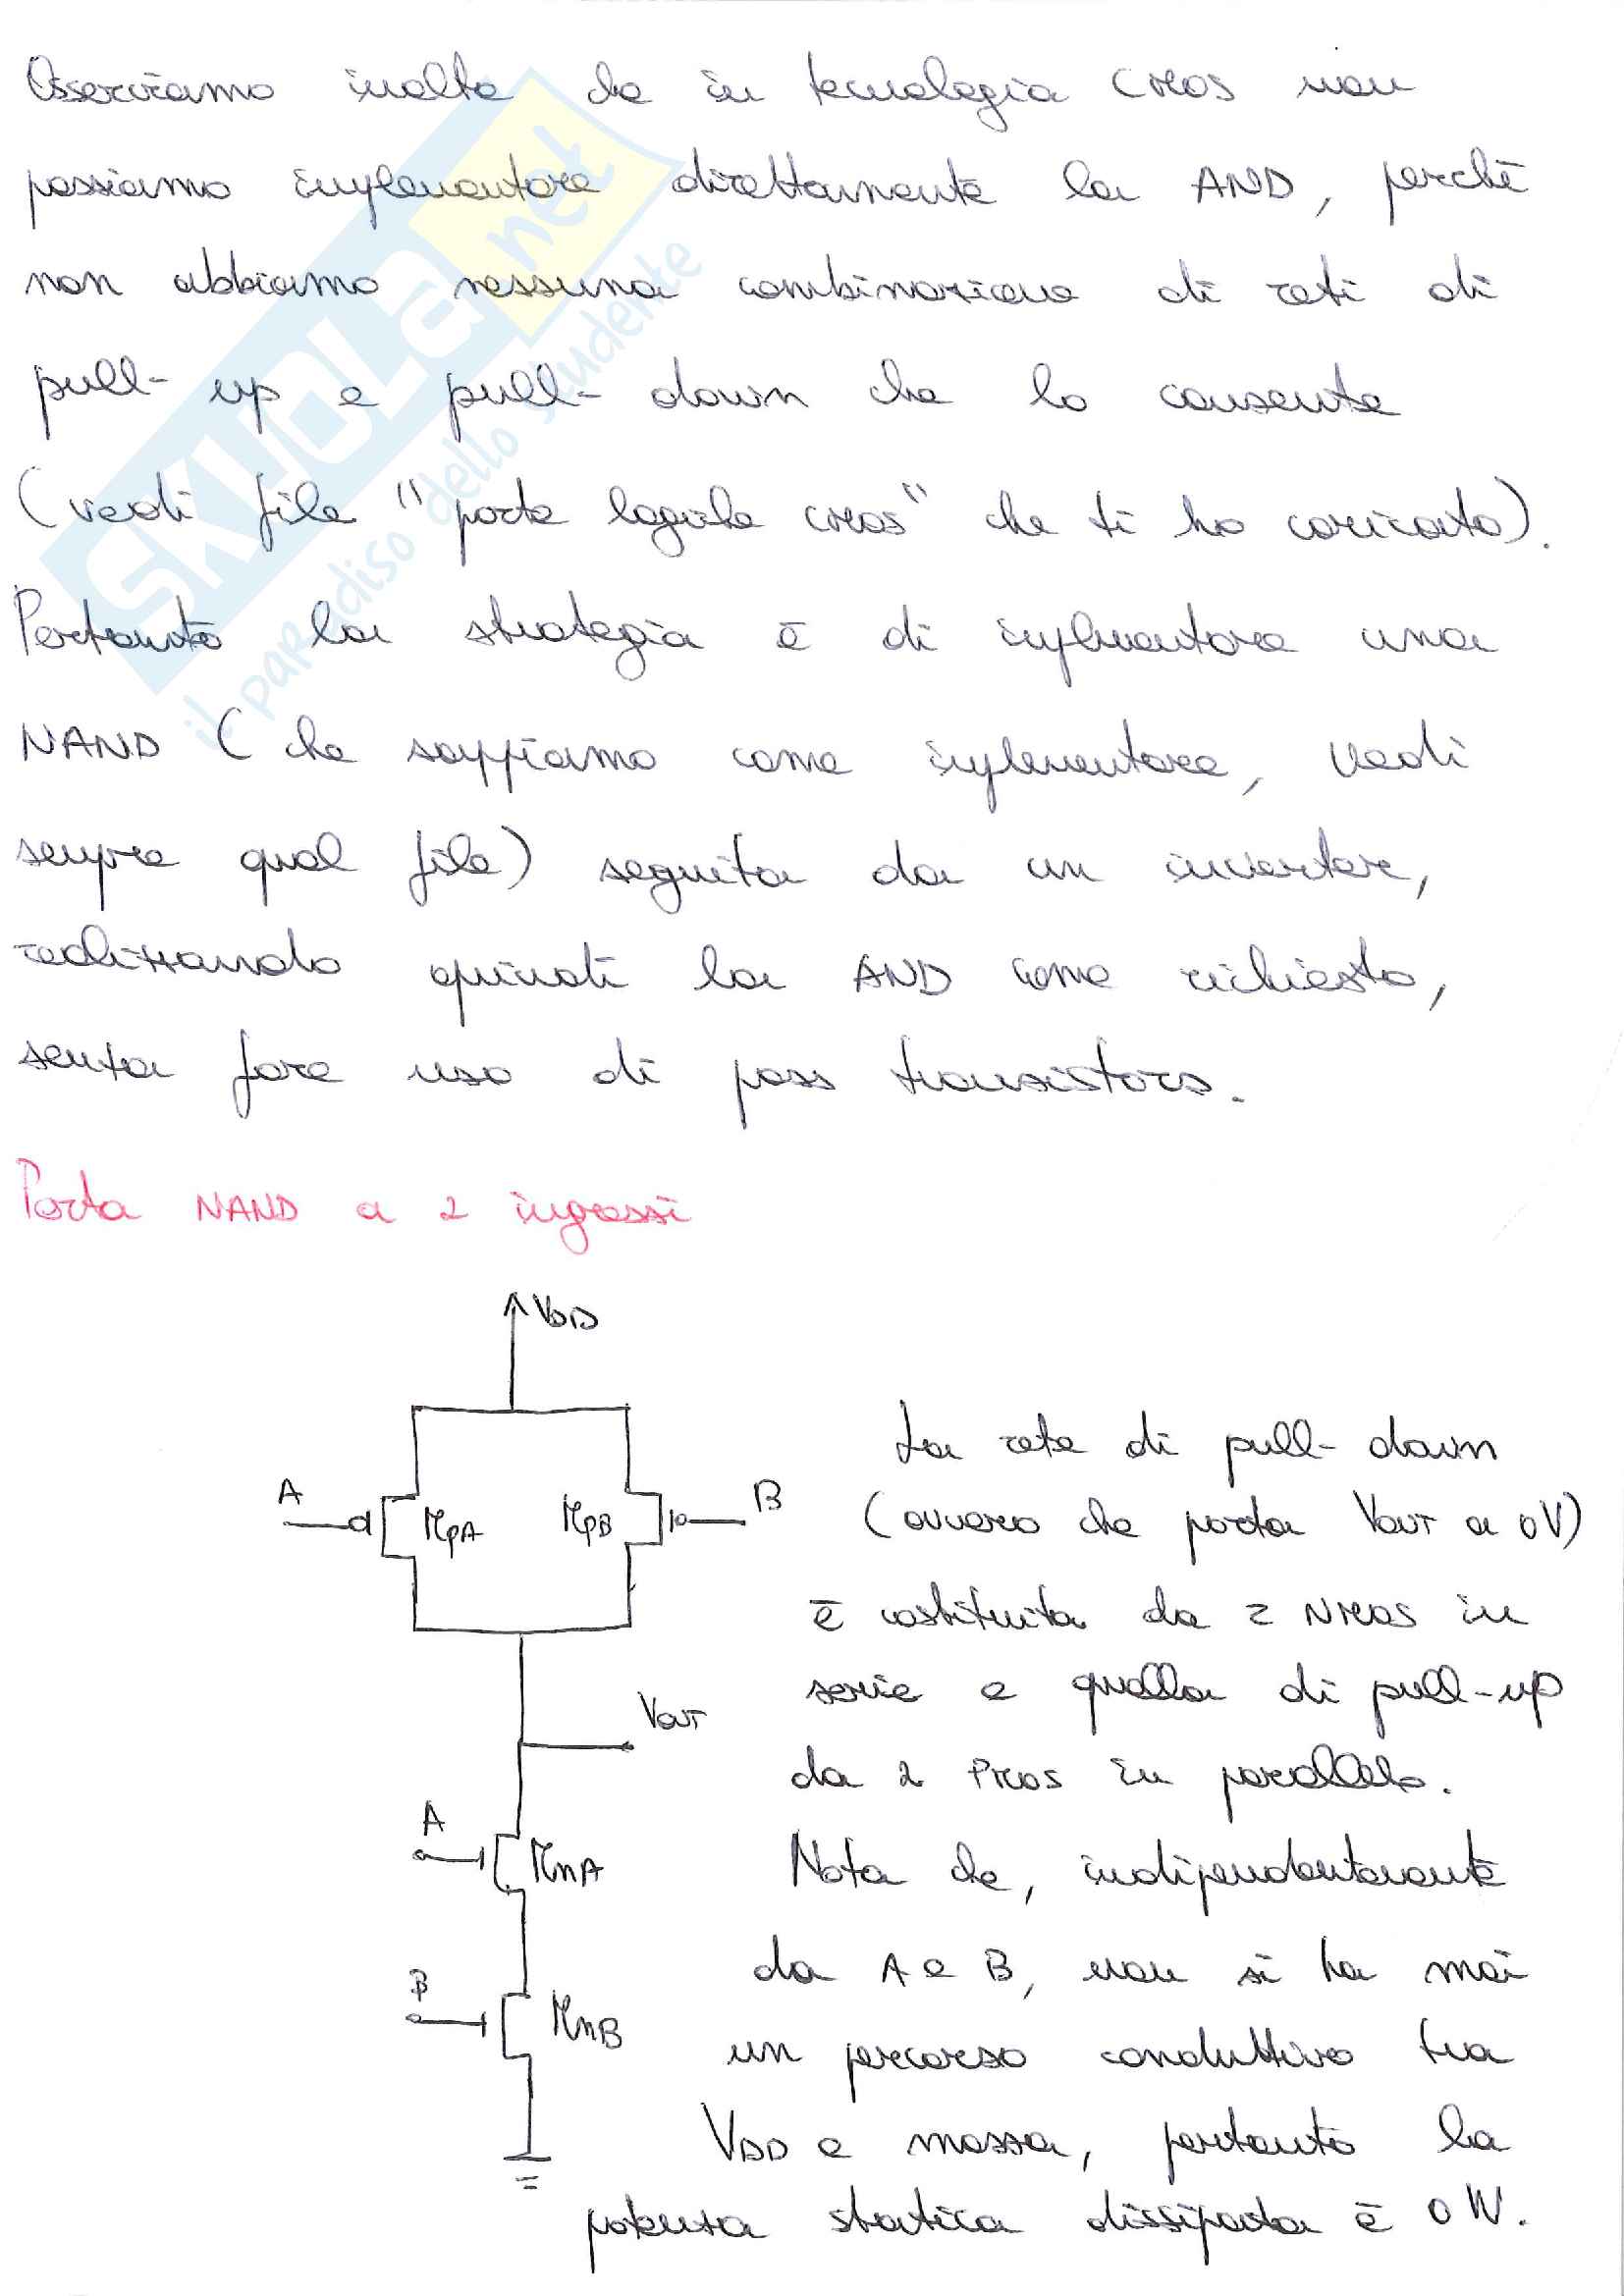 Osserviamo inoltre che in tecnologia CMOS non
possiamo implementare direttamente la AND, perchè
non abbiamo nessuna combinazione di reti di
pull-up e pull-down che lo consente
(vedi file "porte logiche CMOS" che ti ho caricato).
Pertanto la strategia è di implementare una
NAND (che sappiamo come implementare, vedi
sempre quel file) seguita da un inverter,
realizzando quindi la AND come richiesto,
senza fare uso di pass transistors.
SKUOLA.net
il paradiso dello studente
Porta NAND a 2 ingressi
VDD
A MpA MpB B
Vout
A MnA
B MnB
La rete di pull-down
(ovvero che porta Vout a 0V)
è costituita da 2 NMOS in
serie e quella di pull-up
da 2 PMOS in parallelo.
Nota che, indipendentemente
da A e B, non si ha mai
un percorso conduttivo tra
VDD e massa, pertanto la
potenza statica dissipata è 0W.